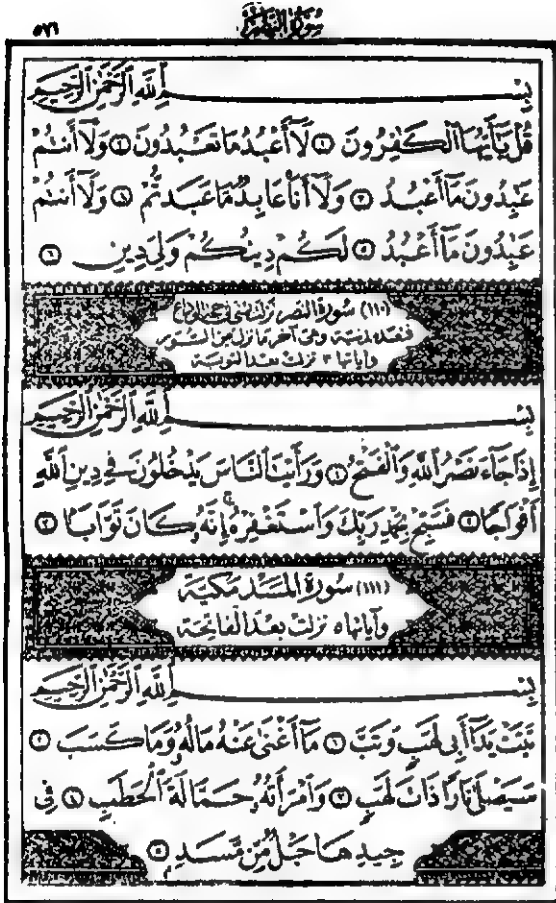 سورة النصر
٥٧٦
بِسْمِ اللَّهِ الرَّحْمَٰنِ الرَّحِيمِ
قُلْ يَٰٓأَيُّهَا ٱلْكَٰفِرُونَ ١ لَآ أَعْبُدُ مَا تَعْبُدُونَ ٢ وَلَآ أَنتُمْ
عَٰبِدُونَ مَآ أَعْبُدُ ٣ وَلَآ أَنَا۠ عَابِدٌ مَّا عَبَدتُّمْ ٤ وَلَآ أَنتُمْ
عَٰبِدُونَ مَآ أَعْبُدُ ٥ لَكُمْ دِينُكُمْ وَلِىَ دِينِ ٦
(١١٠) سورة النصر نزلت بمنى في حجة الوداع
فتعد مدنية وهى آخر ما نزل من السور
وآياتها ٣ نزلت بعد التوبة
بِسْمِ ٱللَّهِ ٱلرَّحْمَٰنِ ٱلرَّحِيمِ
إِذَا جَآءَ نَصْرُ ٱللَّهِ وَٱلْفَتْحُ ١ وَرَأَيْتَ ٱلنَّاسَ يَدْخُلُونَ فِى دِينِ ٱللَّهِ
أَفْوَاجًا ٢ فَسَبِّحْ بِحَمْدِ رَبِّكَ وَٱسْتَغْفِرْهُ إِنَّهُۥ كَانَ تَوَّابًۢا ٣
(١١١) سورة المسد مكية
وآياتها ٥ نزلت بعد الفاتحة
بِسْمِ ٱللَّهِ ٱلرَّحْمَٰنِ ٱلرَّحِيمِ
تَبَّتْ يَدَآ أَبِى لَهَبٍ وَتَبَّ ١ مَآ أَغْنَىٰ عَنْهُ مَالُهُۥ وَمَا كَسَبَ ٢
سَيَصْلَىٰ نَارًا ذَاتَ لَهَبٍ ٣ وَٱمْرَأَتُهُۥ حَمَّالَةَ ٱلْحَطَبِ ٤ فِى
جِيدِهَا حَبْلٌ مِّن مَّسَدٍ ٥